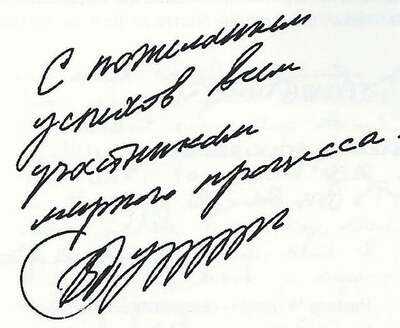 С пожеланием
успехов всем
участникам
мирного процесса.